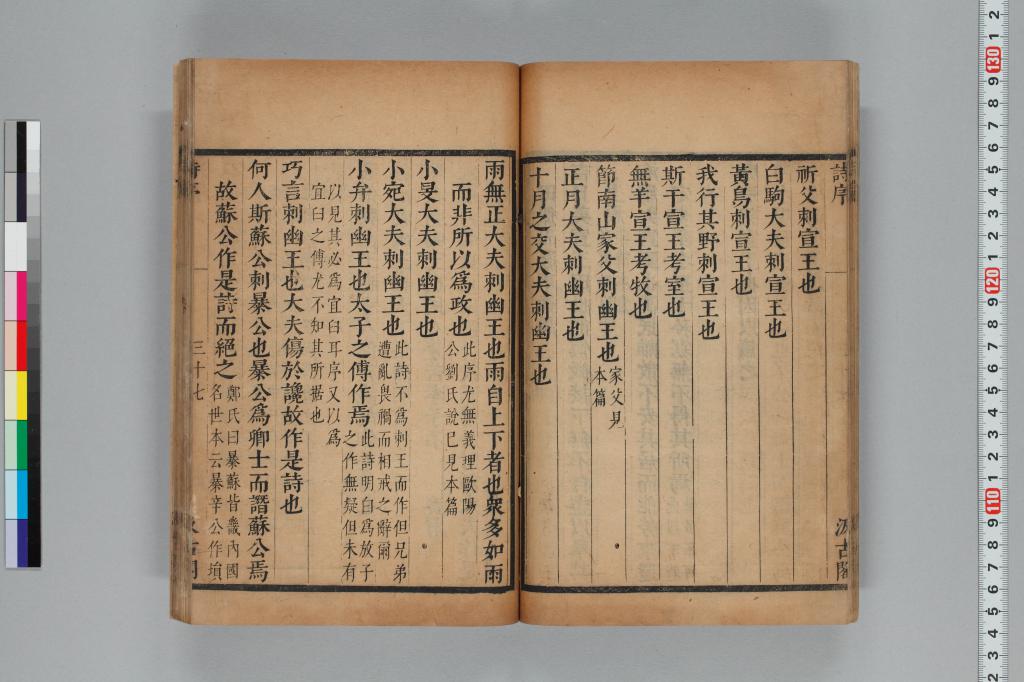 詩序
汲古閣
祈父刺宣王也
白駒大夫刺宣王也
黃鳥刺宣王也
我行其野刺宣王也
斯干宣王考室也
無羊宣王考牧也
節南山家父刺幽王也家父見
本篇
正月大夫刺幽王也
十月之交大夫刺幽王也
雨無正大夫刺幽王也雨自上下者也眾多如雨
而非所以爲政也此序尤無義理歐陽
公劉氏說已見本篇
小旻大夫刺幽王也
小宛大夫刺幽王也此詩不爲刺王而作但兄弟
遭亂與禍而相戒之辭爾
小弁刺幽王也太子之傅作焉此詩明白爲放子
之作無疑但未有
以見其必爲宜臼耳序又以爲
宜臼之傅尤不知其所據也
巧言刺幽王也大夫傷於讒故作是詩也
何人斯蘇公刺暴公也暴公爲卿士而譖蘇公焉
故蘇公作是詩而絕之鄭氏曰暴蘇皆畿內國
名世本云暴辛公作塤
三十七